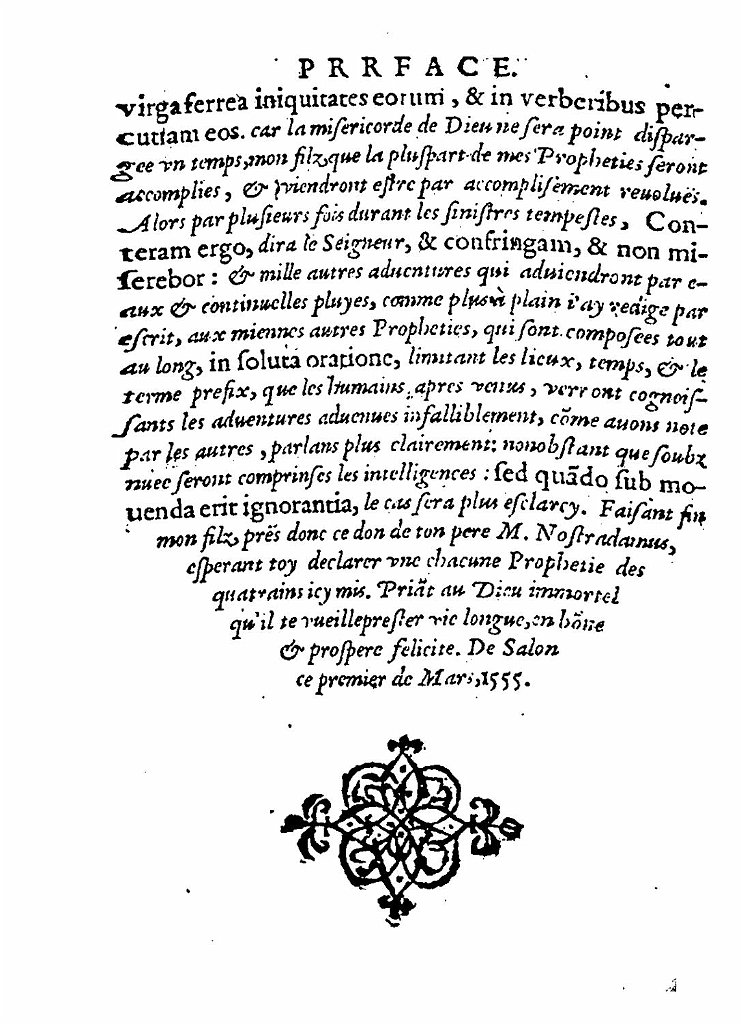 PRRFACE.
virga ferrea iniquitates eorum, & in verberibus per-
cutiam eos. car la misericorde de Dieu ne sera point dispar-
gee vn temps, mon filz, que la pluspart de mes Propheties seront
accomplies, & viendront estre par accomplisement reuolues.
Alors par plusieurs fois durant les sinistres tempestes, Con-
teram ergo, dira le Seigneur, & confringam, & non mi-
serebor: & mille autres aduentures qui aduiendront par e-
aux & continuelles pluyes, comme plus à plain i'ay redige par
escrit, aux miennes autres Propheties, qui sont composees tout
au long, in soluta oratione, limitant les lieux, temps, & le
terme prefix, que les humains apres venus, verront cognois-
sants les aduentures aduenues infalliblement, cõme auons note
par les autres, parlans plus clairement: nonobstant que soubz
nuee seront comprinses les intelligences: sed quãdo sub mo-
uenda erit ignorantia, le cas sera plus esclarcy. Faisant fin
mon filz, prës donc ce don de ton pere M. Nostradamus,
esperant toy declarer vne chacune Prophetie des
quatrains icy mis. Priãt au Dieu immortel
qu'il te vueille prester vie longue, en bõne
& prospere felicite. De Salon
ce premier de Mars, 1555.